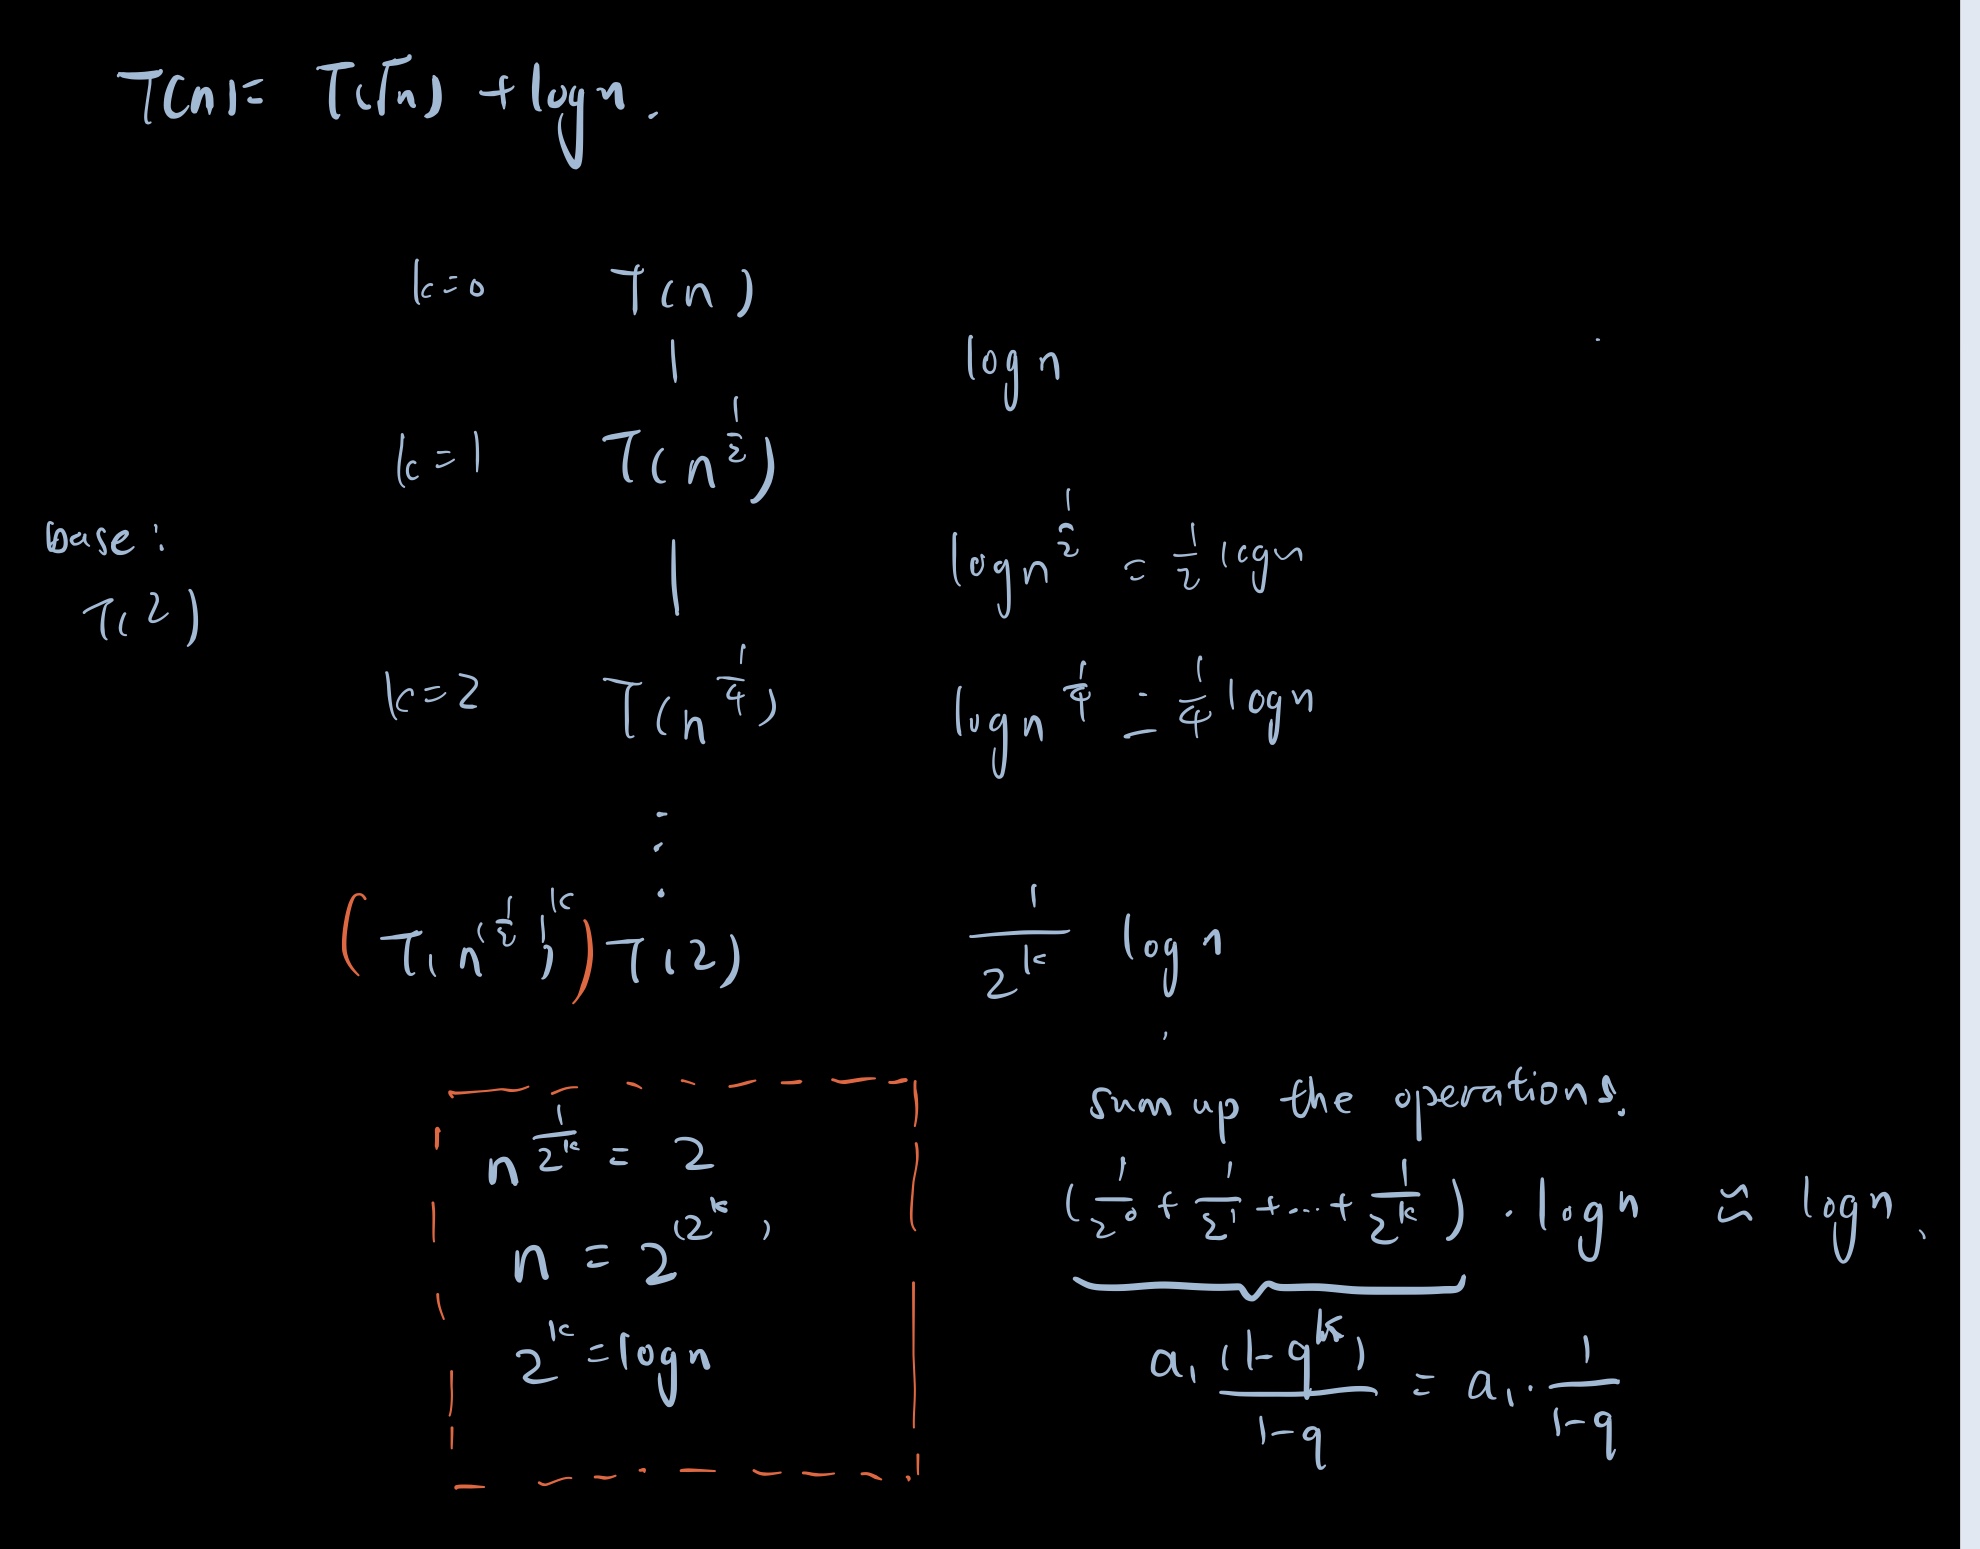 T(n) = T(√n) + log n.
k=0 T(n)
log n
k=1 T(n^{1/2})
base:
log n^{1/2} = 1/2 log n
T(2)
k=2 T(n^{1/4}) log n^{1/4} = 1/4 log n
⋮
(T(n^{(1/2)^k})) T(2) 1/2^k log n
n^{1/2^k} = 2
n = 2^{(2^k)}
2^k = log n
sum up the operations.
(1/2^0 + 1/2^1 + ... + 1/2^k) · log n ≈ log n.
a_1 (1-q^k)/(1-q) = a_1 · 1/(1-q)